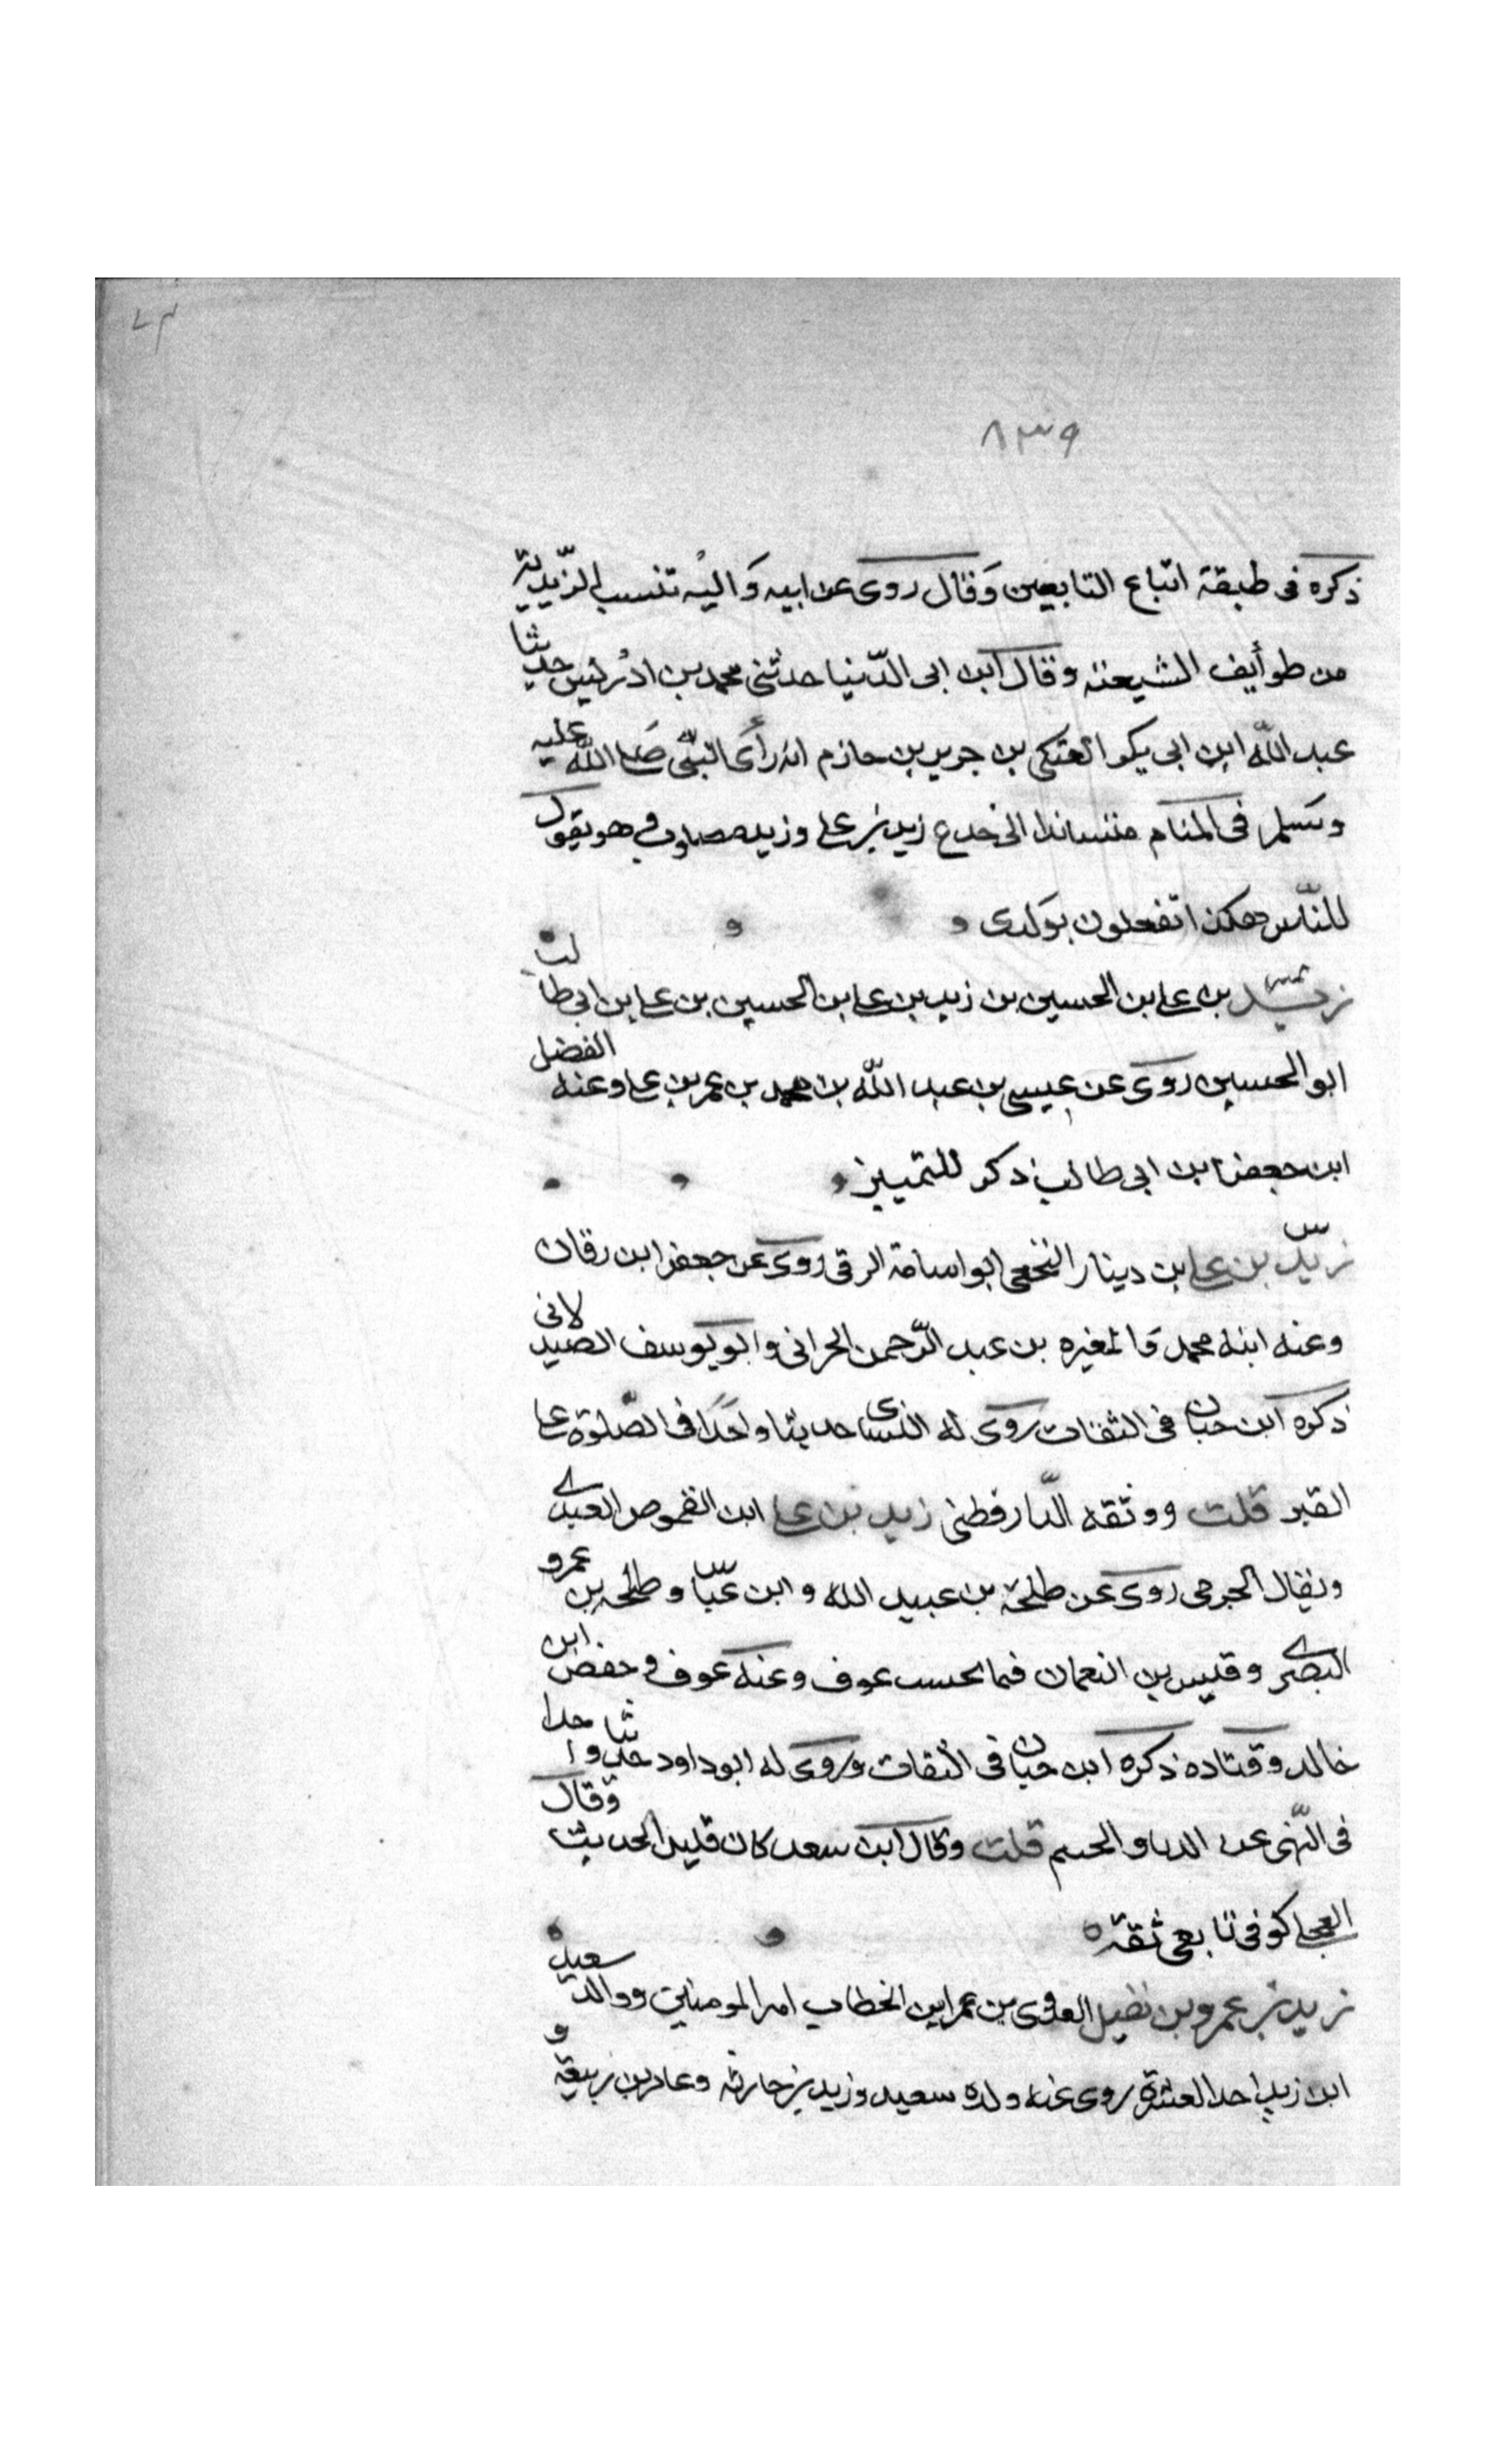 ٨٣٩
ذكره فى طبقة اتباع التابعين وقال روى عن ابيه واليه تنسب الزيدية
من طوأيف الشيعته وقال ابن ابى الدنيا حدثنى محمد بن ادريس حدثنا
عبد الله ابن ابى يكو العتكى بن جرير بن حازم انه رأى النبى صلى الله عليه
وسلم فى المنام متساندا الى خدع زيد بن على وزيد مصلوب وهو يقول
للناس هكذا تفعلون بولدى
زيد بن على بن الحسين بن زيد بن على بن الحسين بن على بن ابى طالب
ابو الحسين روى عن عيسى بن عبد الله بن محمد بن عمر بن على وعنه الفضل
ابن جعفر ابن ابى طالب ذكر للتمييز
زيد بن على ابن دينار النخعى ابو اسامة الرقى روى عن جعفر ابن رقان
وعنه ابنه محمد والمغيره بن عبد الرحمن الحرانى وابو يوسف الصيدلانى
ذكره ابن حبان فى الثقات روى له النسائى حديثا واحدا فى الصلوة على
القبر قلت ووثقه الدارقطنى زيد بن على ابن القموص العبدى
ويقال الجرمى روى عن طلحة بن عبيد الله وابن عباس وطلحه بن عمرو
البصرى وقيس بن النعمان فيما يحسب عوف وعنه عوف وحفص ابن
خالد وقتاده ذكره ابن حبان فى الثقات وروى له ابو داود حديثا واحدا
فى النهى عن الدباو الحسم قلت وقال ابن سعد كان قليل الحديث وقال
العجلى كوفى تابعى ثقة
زيد بن عمرو بن نفيل العدوى بن عمر ابن الخطاب امير المومنين ووالد سعيد
ابن زيد احد العشرة روى عنه ولده سعيد وزيد بن حارثه وعامر بن ربيعة و